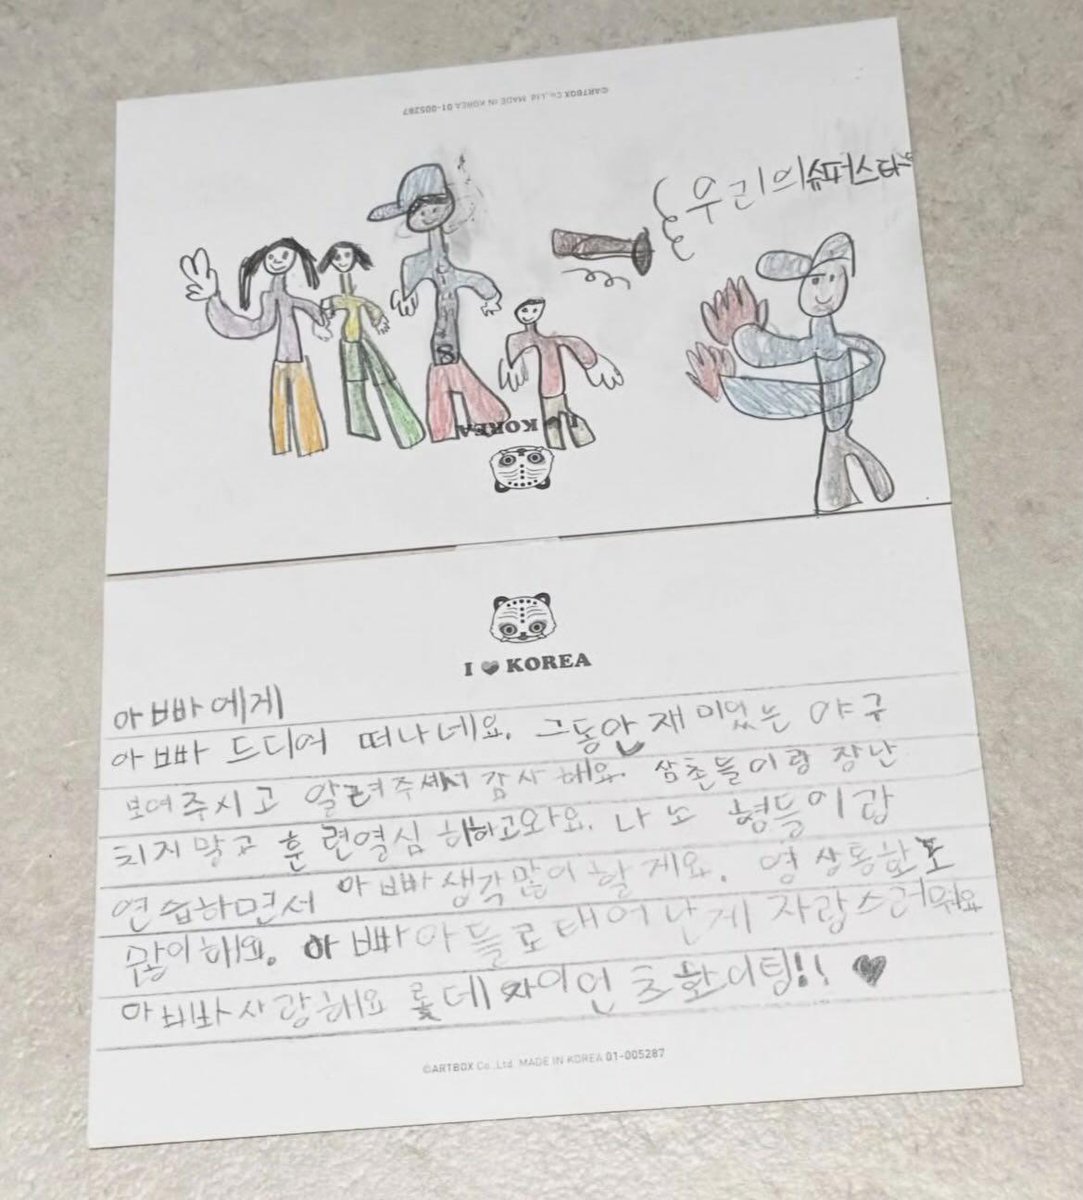 ©ARTBOX Co.,Ltd. MADE IN KOREA 01-005287
우리의 슈퍼스타
8
I KOREA
I ♥ KOREA
아빠에게
아빠 드디여 떠나네요. 그동안 재미있는 야구
보여주시고 알려주셔서 감사해요. 삼촌들이랑 장난
치지말고 훈련열심히하고와요. 나도 형들이랑
연습하면서 아빠생각많이할게요. 영상통화도
많이해요. 아빠아들로태어난게 자랑스러워요
아빠사랑해요 롯데자이언츠화이팅!! ♥
©ARTBOX Co.,Ltd. MADE IN KOREA 01-005287